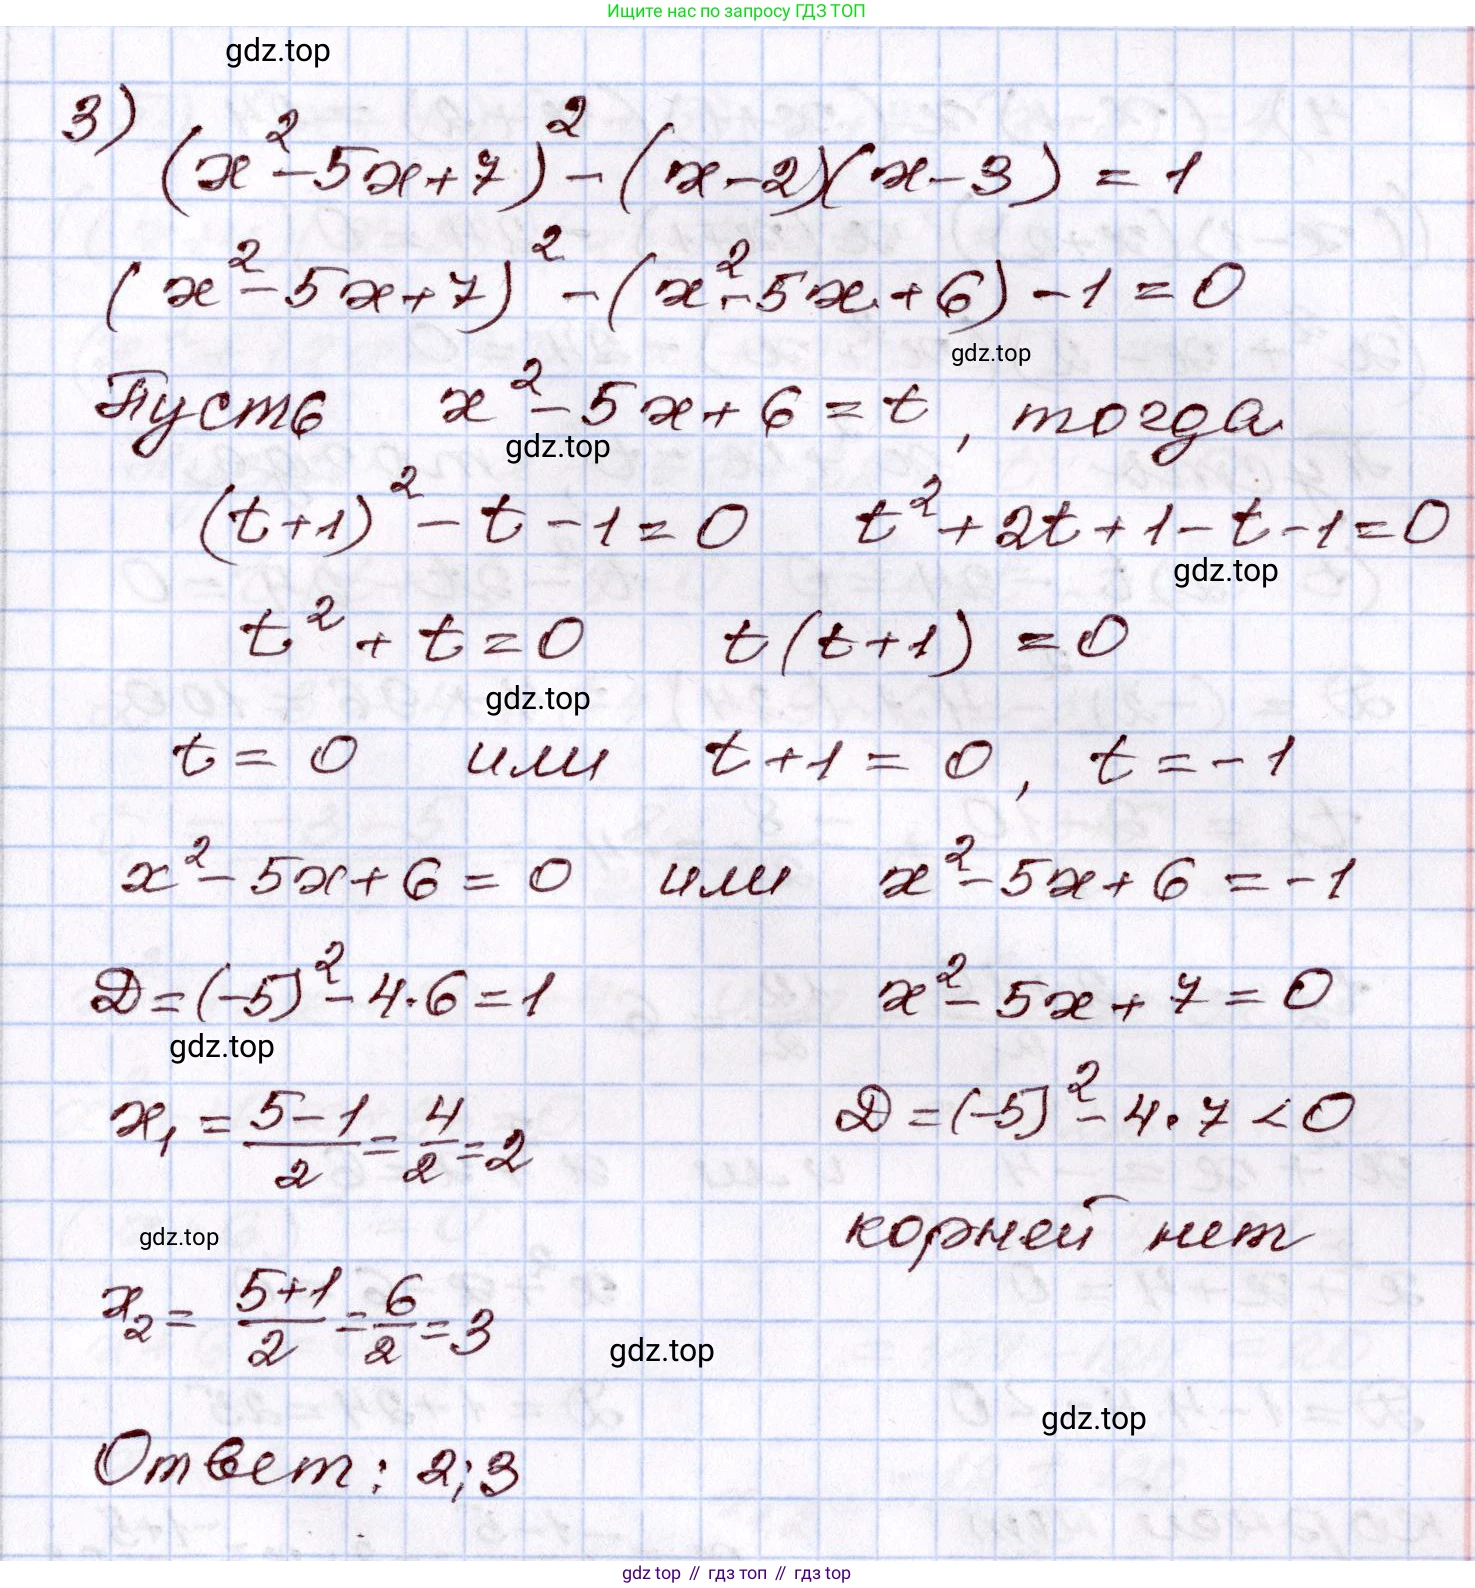 Ищите нас по запросу ГДЗ ТОП
gdz.top
3) (x²-5x+7)²-(x-2)(x-3)=1
(x²-5x+7)²-(x²-5x+6)-1=0
gdz.top
Пусть x²-5x+6=t, тогда
gdz.top
(t+1)²-t-1=0 t²+2t+1-t-1=0
gdz.top
t²+t=0 t(t+1)=0
gdz.top
t=0 или t+1=0, t=-1
x²-5x+6=0 или x²-5x+6=-1
D=(-5)²-4·6=1 x²-5x+7=0
gdz.top
x₁=5-1/2=4/2=2 D=(-5)²-4·7<0
gdz.top
корней нет
x₂=5+1/2=6/2=3
gdz.top
gdz.top
Ответ: 2;3
gdz top // гдз топ // гдз top